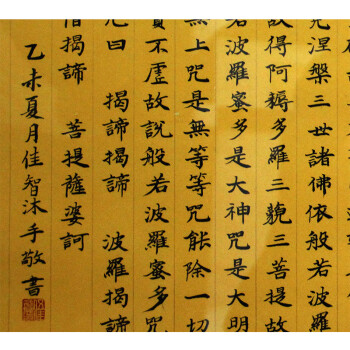 涅槃三世諸佛依般若波羅
故得阿耨多羅三藐三菩提故
般若波羅蜜多是大神咒是大明
無上咒是無等等咒能除一切
實不虛故說般若波羅蜜多咒
咒曰 揭諦揭諦 波羅揭諦
僧揭諦 菩提薩婆訶
乙未夏月佳智沐手敬書